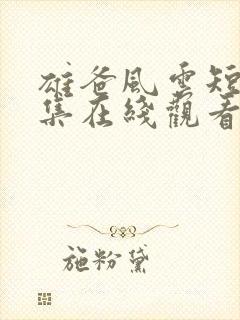 雄爸風雲短
集在綫觀看
施粉黛